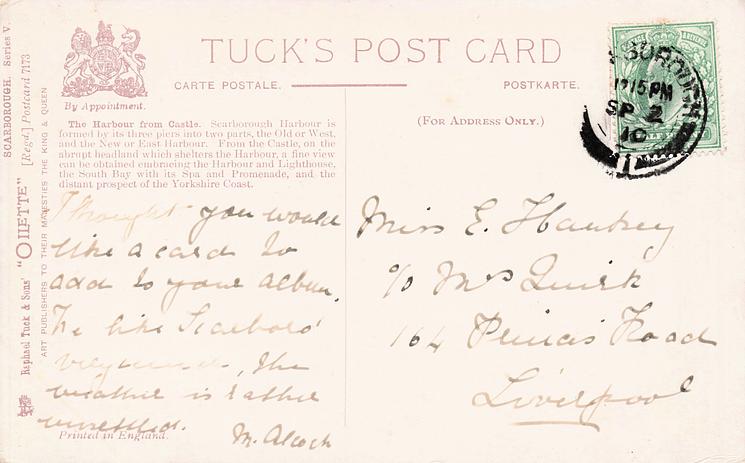 TUCK'S POST CARD
CARTE POSTALE. POSTKARTE.
By Appointment.
(FOR ADDRESS ONLY.)
The Harbour from Castle. Scarborough Harbour is
formed by its three piers into two parts, the Old or West,
and the New or East Harbour. From the Castle, on the
abrupt headland which shelters the Harbour, a fine view
can be obtained embracing the Harbour and Lighthouse,
the South Bay with its Spa and Promenade, and the
distant prospect of the Yorkshire Coast.
SCARBOROUGH. Series V.
Raphael Tuck & Sons' "OILETTE" [Regd.] Postcard 7173
ART PUBLISHERS TO THEIR MAJESTIES THE KING & QUEEN
Thought you would
like a card to
add to your album.
We like Scarboro'
very much, the
weather is rather
unsettled.
M. Alcock
Printed in England.
Miss E.
c/o Mrs Quirk
164 Princes Road
Liverpool
POSTAGE REVENUE
BOROUGH
12 15 PM
SP 2
10